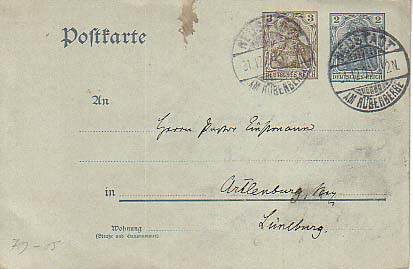 Postkarte
3
DEUTSCHES REICH
2
DEUTSCHES REICH
NEUSTADT
31.12.
AM RÜBENBERGE
NEUSTADT
AM RÜBENBERGE
An
Herrn Pastor
in Artlenburg,
Lüneburg.
Wohnung
(Straße und Hausnummer)